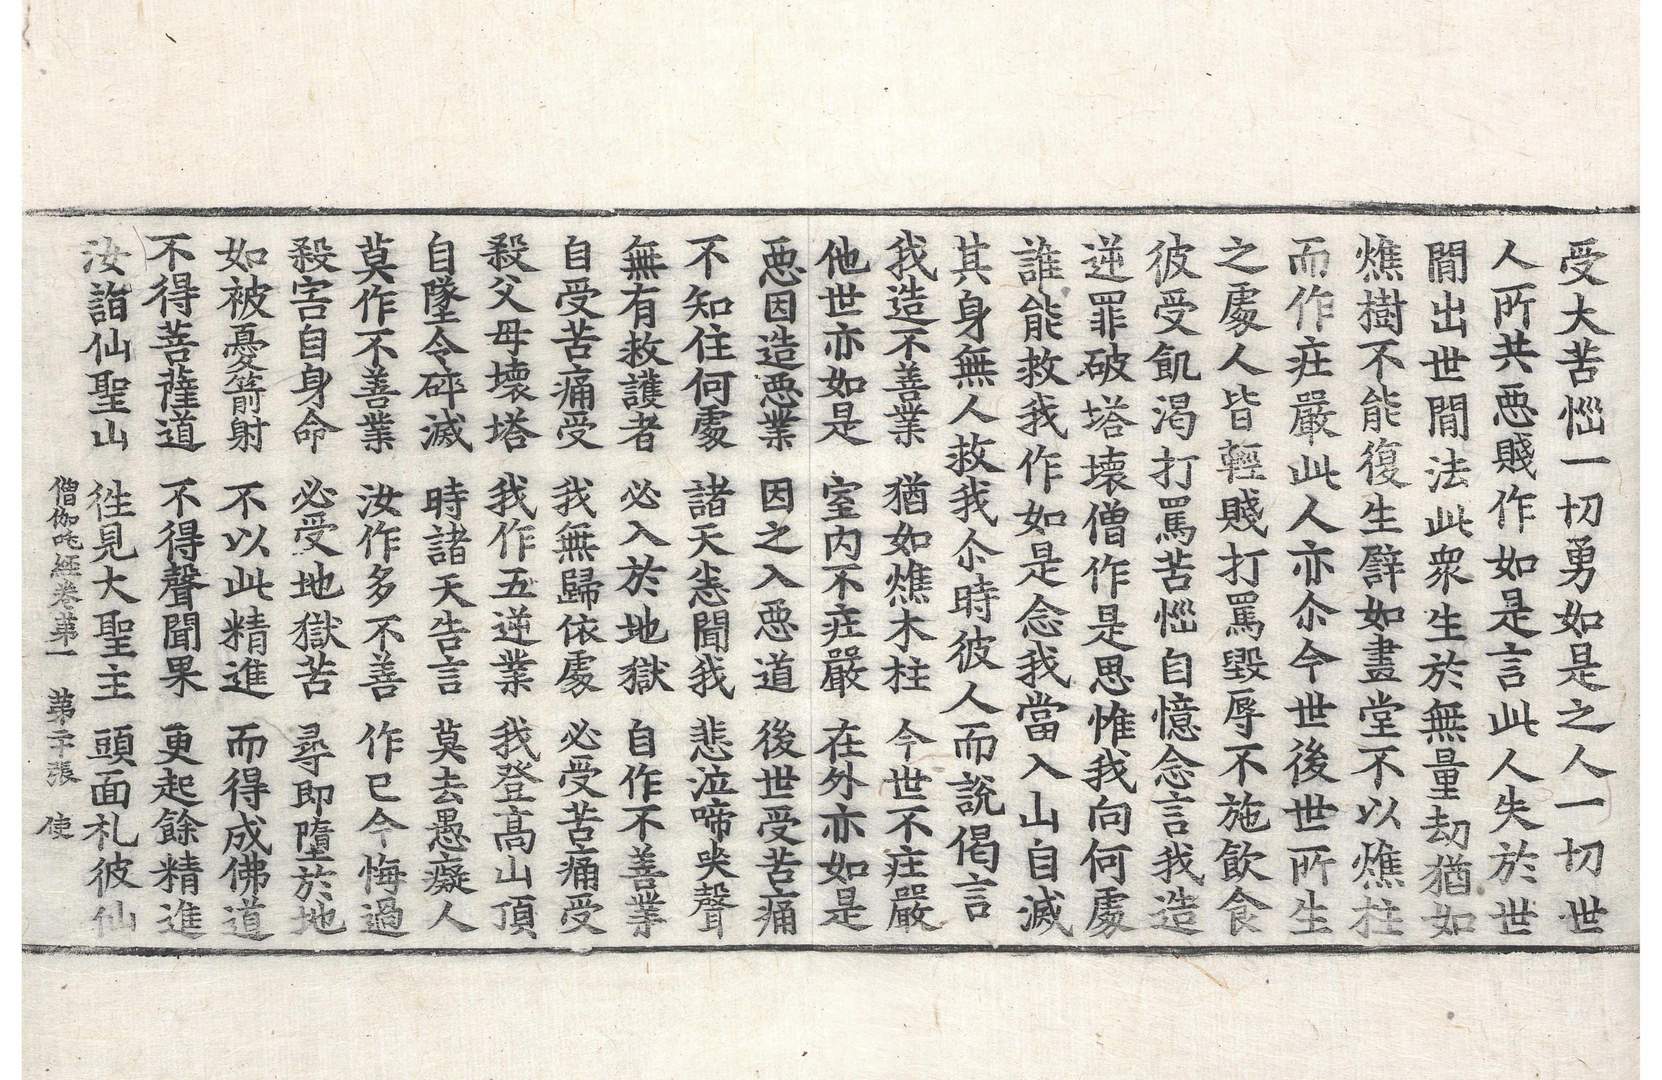 受大苦惱一切勇如是之人一切世
人所共惡賤作如是言此人失於世
閒出世閒法此衆生於無量劫猶如
燋樹不能復生譬如畫堂不以燋柱
而作庄嚴此人亦尒今世後世所生
之處人皆輕賤打罵毀辱不施飲食
彼受飢渴打罵苦惱自憶念言我造
逆罪破塔壞僧作是思惟我向何處
誰能救我作如是念我當入山自滅
其身無人救我尒時彼人而說偈言
我造不善業 猶如燋木柱 今世不庄嚴
他世亦如是 室內不庄嚴 在外亦如是
惡因造惡業 因之入惡道 後世受苦痛
不知住何處 諸天悉聞我 悲泣啼哭聲
無有救護者 必入於地獄 自作不善業
自受苦痛受 我無歸依處 必受苦痛受
殺父母壞塔 我作五逆業 我登高山頂
自墜令碎滅 時諸天告言 莫去愚癡人
莫作不善業 汝作多不善 作已今悔過
殺害自身命 必受地獄苦 尋即墮於地
如被憂箭射 不以此精進 而得成佛道
不得菩薩道 不得聲聞果 更起餘精進
汝詣仙聖山 徃見大聖主 頭面礼彼仙
僧伽吒經卷第一 第二十張 使